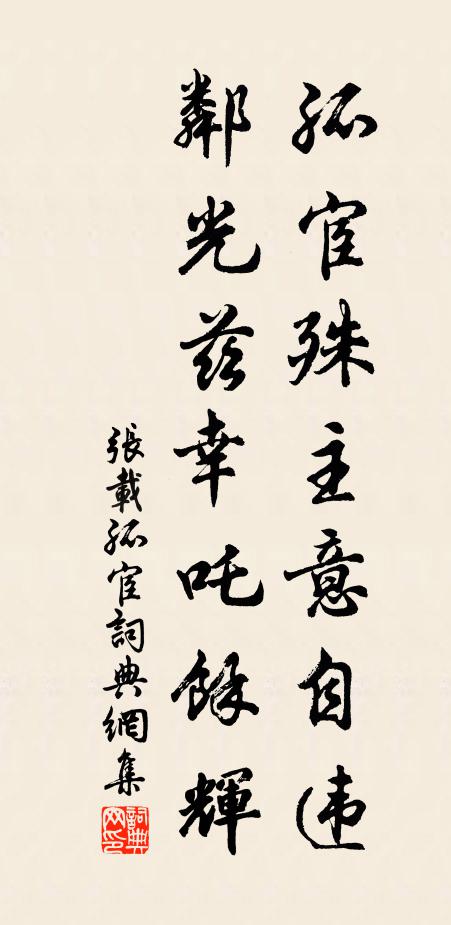 孤宦殊主意自违
鄰光茲幸吒餘輝
張載孤宦詞典網集
詞典网印